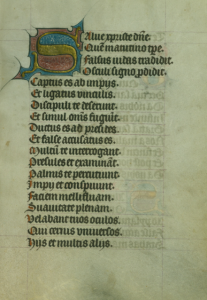 Salue xpriste dñe.
Qui matutino tpe.
Falsus iudas tradidit.
Osculi signo ꝓdidit.
Captus es ab impijs.
Et ligatus vinculis.
Discipuli te deserunt.
Et simul oms fugiũt.
Ductus es ad presides.
Et false accusatus es.
Multi te interrogant.
Presules te examinãt.
Palmis te percutiunt.
Impij te conspuunt.
Faciem mellifluam.
Suauitate plenam.
Velabant tuos oculos.
Qui cernis vniuersos.
Hijs et multis alijs.